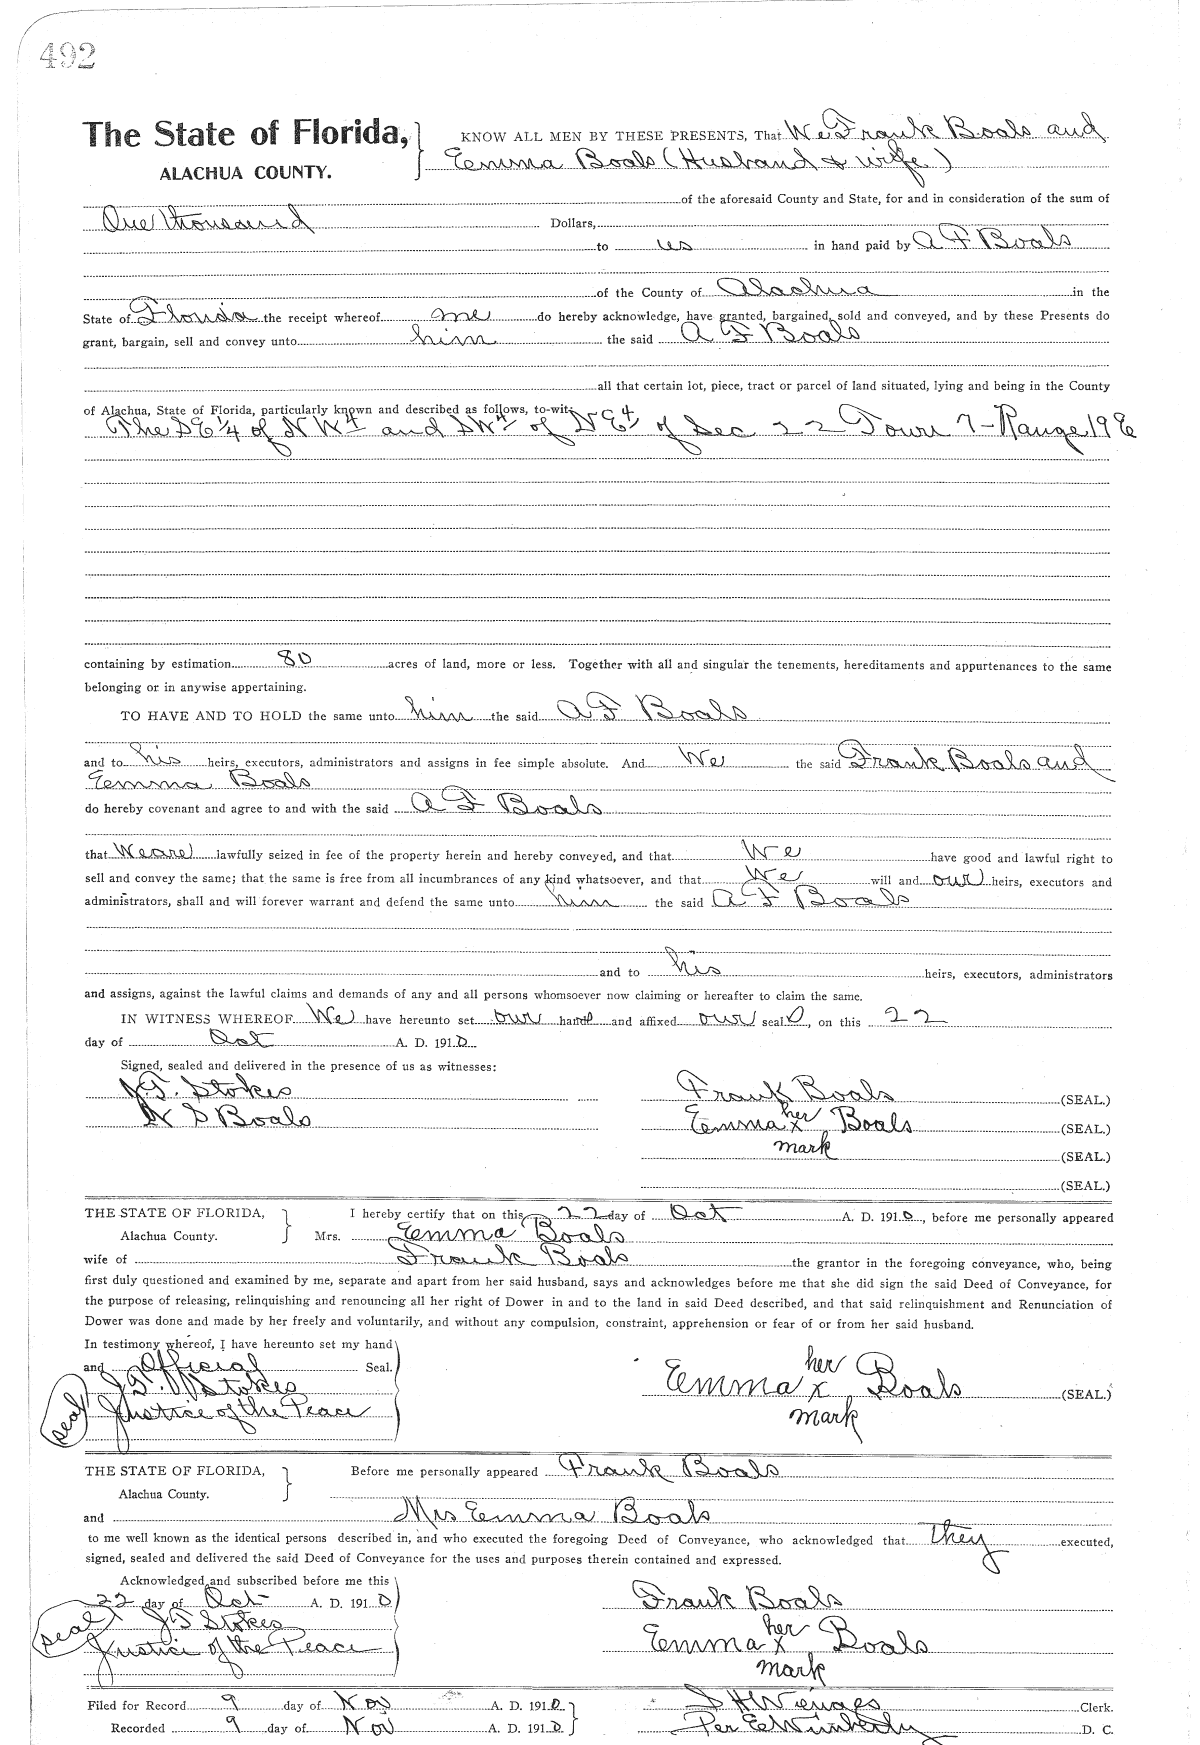 492
The State of Florida, KNOW ALL MEN BY THESE PRESENTS, That We Frank Boals and
ALACHUA COUNTY. Emma Boals (Husband & wife)
of the aforesaid County and State, for and in consideration of the sum of
One thousand Dollars,
to us in hand paid by A F Boals
of the County of Alachua in the
State of Florida the receipt whereof me do hereby acknowledge, have granted, bargained, sold and conveyed, and by these Presents do
grant, bargain, sell and convey unto him the said A F Boals
all that certain lot, piece, tract or parcel of land situated, lying and being in the County
of Alachua, State of Florida, particularly known and described as follows, to-wit:
The SE 1/4 of NW 4 and SW 4 of NE 4 of Sec 22 Town 7 - Range 19 E
containing by estimation 80 acres of land, more or less. Together with all and singular the tenements, hereditaments and appurtenances to the same
belonging or in anywise appertaining.
TO HAVE AND TO HOLD the same unto him the said A F Boals
and to his heirs, executors, administrators and assigns in fee simple absolute. And We the said Frank Boals and
Emma Boals
do hereby covenant and agree to and with the said A F Boals
that We are lawfully seized in fee of the property herein and hereby conveyed, and that We have good and lawful right to
sell and convey the same; that the same is free from all incumbrances of any kind whatsoever, and that We will and our heirs, executors and
administrators, shall and will forever warrant and defend the same unto him the said A F Boals
and to his heirs, executors, administrators
and assigns, against the lawful claims and demands of any and all persons whomsoever now claiming or hereafter to claim the same.
IN WITNESS WHEREOF We have hereunto set our hands and affixed our seals, on this 22
day of Oct A. D. 1910.
Signed, sealed and delivered in the presence of us as witnesses:
J. T. Stokes Frank Boals (SEAL.)
N S Boals Emma her x Boals (SEAL.)
mark (SEAL.)
(SEAL.)
THE STATE OF FLORIDA, I hereby certify that on this 22 day of Oct A. D. 1910, before me personally appeared
Alachua County. Mrs. Emma Boals
wife of Frank Boals the grantor in the foregoing conveyance, who, being
first duly questioned and examined by me, separate and apart from her said husband, says and acknowledges before me that she did sign the said Deed of Conveyance, for
the purpose of releasing, relinquishing and renouncing all her right of Dower in and to the land in said Deed described, and that said relinquishment and Renunciation of
Dower was done and made by her freely and voluntarily, and without any compulsion, constraint, apprehension or fear of or from her said husband.
In testimony whereof, I have hereunto set my hand
and Official Seal. her
J. T. Stokes Emma x Boals (SEAL.)
seal Justice of the Peace mark
THE STATE OF FLORIDA, Before me personally appeared Frank Boals
Alachua County.
and Mrs Emma Boals
to me well known as the identical persons described in, and who executed the foregoing Deed of Conveyance, who acknowledged that they executed,
signed, sealed and delivered the said Deed of Conveyance for the uses and purposes therein contained and expressed.
Acknowledged and subscribed before me this
22 day of Oct A. D. 1910 Frank Boals
seal J T Stokes her
Justice of the Peace Emma x Boals
mark
Filed for Record 9 day of Nov A. D. 1910 S H Wienges Clerk.
Recorded 9 day of Nov A. D. 1910. Per E Wimberly D. C.